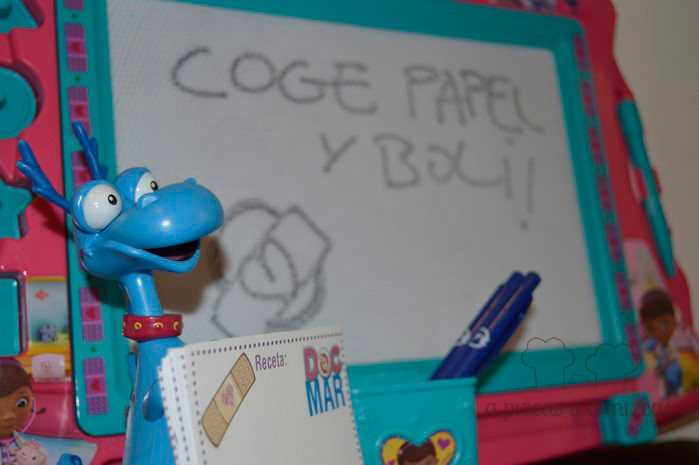 COGE PAPEL
Y BOLI!
Receta:
DOC
MAR